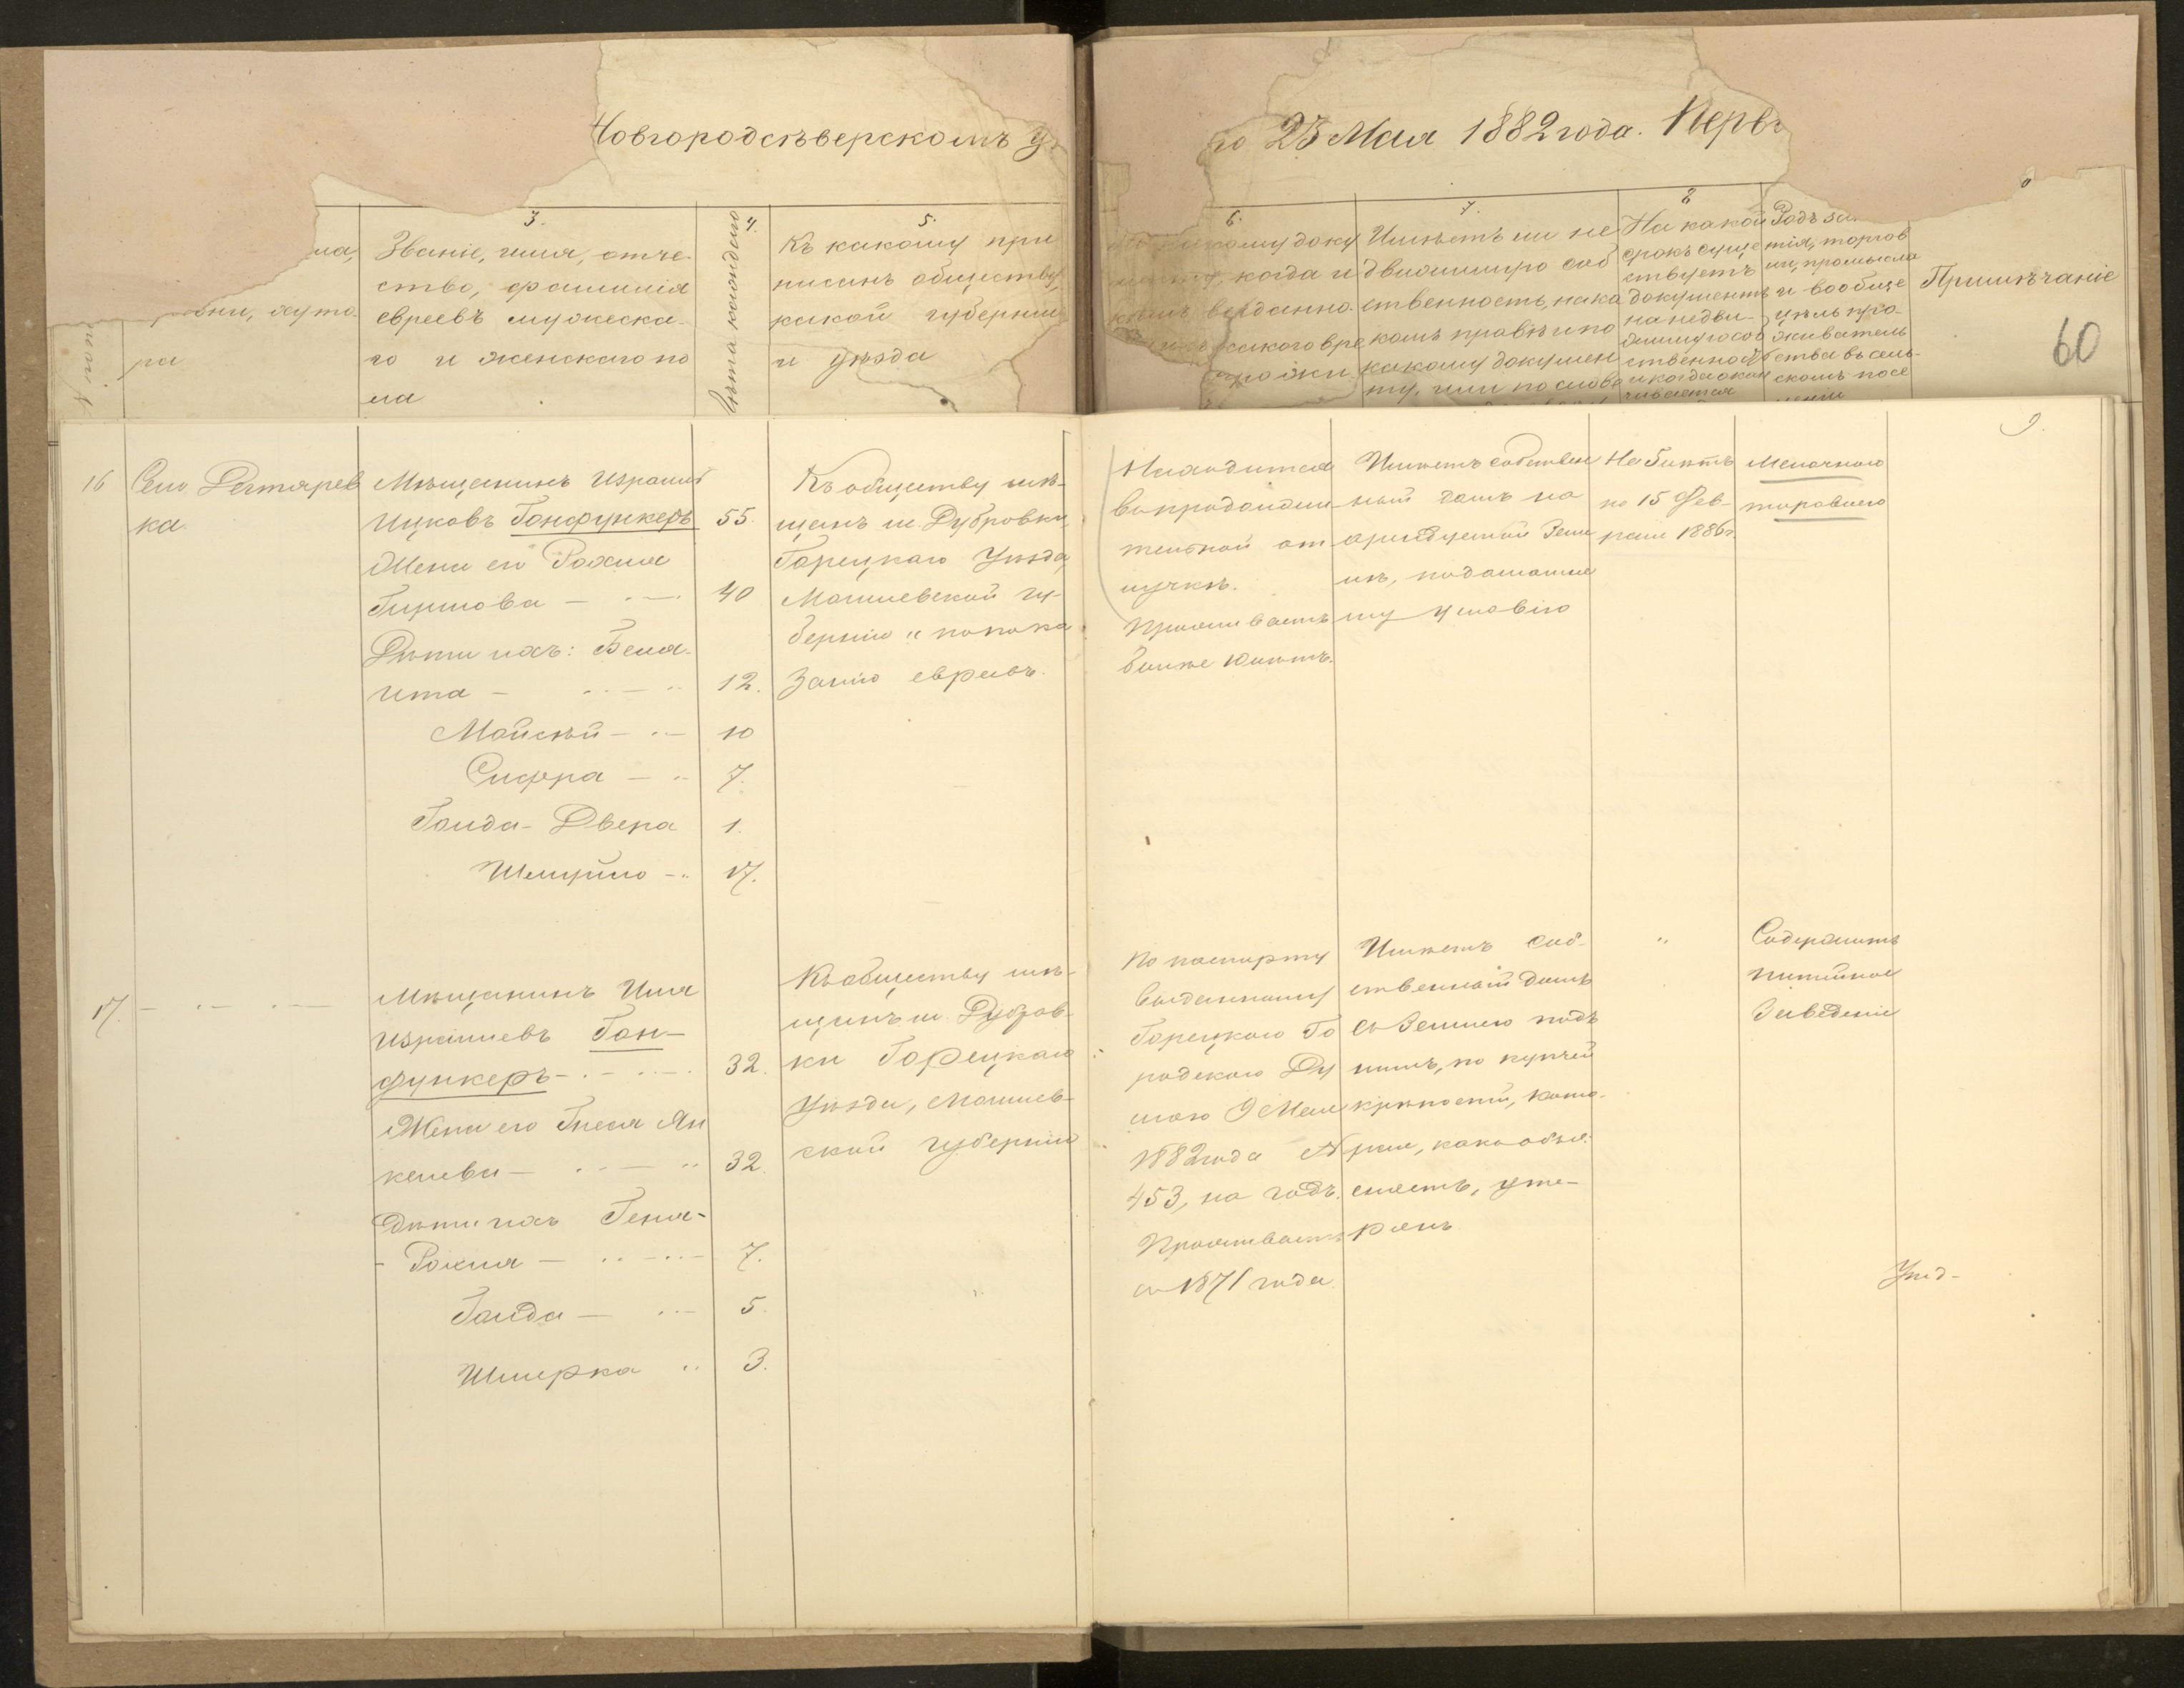 Новгородсѣверскомъ у
го 23 Мая 1882 года. Перв
3.
4.
5.
6.
7.
8
ла,
Званіе, имя, отче-
ство, фамилія
евреевъ мужеска-
го и женскаго по
ла
ни, хуто-
ра
Лѣта каждаго
Къ какому при
писанъ обществу,
какой губерніи
и уѣзда
какому доку
когда и
кѣмъ выданно.
какого вре
Имѣетъ ли не
движимую соб
ственность, на ка
комъ правѣ и по
какому докумен
ту, или по слове
На какой
срокъ суще
ствуетъ
документъ
на недви-
жимую соб
ственность
и когда окан
чивается
Родъ за
тія, торгов
ли, промысла
и вообще
цѣль про-
живатель
ства въ сель-
скомъ посе
леніи
Примѣчаніе
60
9.
16
Село Дегтярев
ка
Мѣщанинъ Израиль
Ицковъ Ганфункеръ
55.
Жена его Рохля
Гиршова
40
Дѣти ихъ: Бейля-
Ита
12.
Мойсѣй
10
Сифра
7.
Голда-Двера
1.
Шмуйло
17.
Къ обществу мѣ-
щанъ м. Дубровки,
Горецкаго Уѣзда,
Могилевской гу-
берніи "по пока
занію евреевъ.
Находится
въ продолжи-
тельной от-
лучкѣ.
Проживаетъ
болѣе 10 лѣтъ.
Имѣетъ собствен
ный домъ на
арендуемой Зем
лѣ, по домашне
му условію
На 5 лѣтъ
по 15 Фев-
раля 1886 г.
Мелочною
торговлею
17.
Мѣщанинъ Илья
Израилевъ Ган-
функеръ
32.
Жена его Гнеся Ян
келева
32.
Дѣти ихъ Геня-
Рохля
7.
Голда
5.
Шмерка
3.
Къ обществу мѣ-
щанъ м. Дубров-
ки Горецкаго
Уѣзда, Могилев-
ской губерніи
По паспорту
выданному
Горецкою Го
родскою Ду
мою 9 Мая
1882 года №
453, на годъ.
Проживаетъ
съ 1871 года
Имѣетъ соб-
ственный домъ
съ Землею подъ
нимъ, по купчей
крѣпости, кото-
рая, какъ объя-
сняетъ, уте-
ряна
"
Содержитъ
питейное
Заведеніе
Уѣзд-